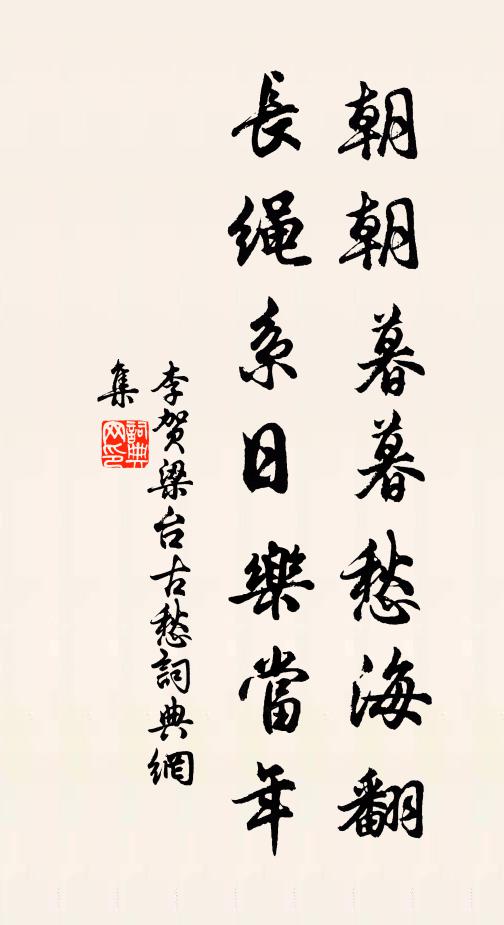 朝朝暮暮愁海翻
長繩系日樂當年
李贺梁台古愁詞典網
集
詞典网印